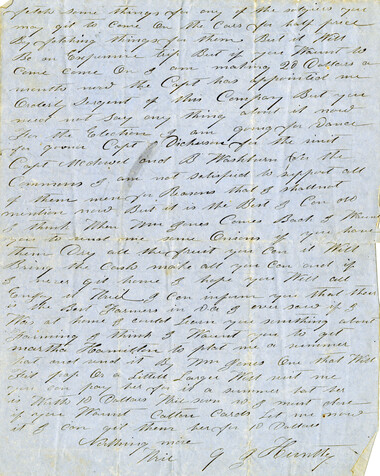 fetch some things for any of the soljers you
may git to Come On the Cars for half price
By fetching things for them But it Will
Be an Expensive Trip But if you Waunt to
Come Come On I am making 20 Dollars a
month now the Capt has appointed me
Orderly Sergent of this Company But you
need not Say any thing about it now
For the Election I am going for Vance
for govner Capt Dickerson for the
Capt McDowel and B Washburn for the
Commons I am not satisfied to support all
of them men for Reasons that I shall not
mention now But it is the Best I Can do
I think When Wm Jones Comes Back I Waunt
you to send me some Onions if you have
them Dry all the fruit you Can it Will
Bring the Cash make all you Can and if
I never git home I hope you Will all
Enjoy it Well I Can inform you that this
is the Best Farmers in Va I ever saw if I
Was at home I could learn you somthing about
Farming I think I Waunt you to get
Martha Hamilton to plat me a summer
hat and send it By Wm Jones One that Will
fit pap Or a little Larger Will suit me
you Can pay her for it a summer hat here
is Worth 10 Dollars Write soon as I must close
if you Waunt Cotten Cards let me now
it I can get them her for 10 Dollars
Nothing more
G J Huntley